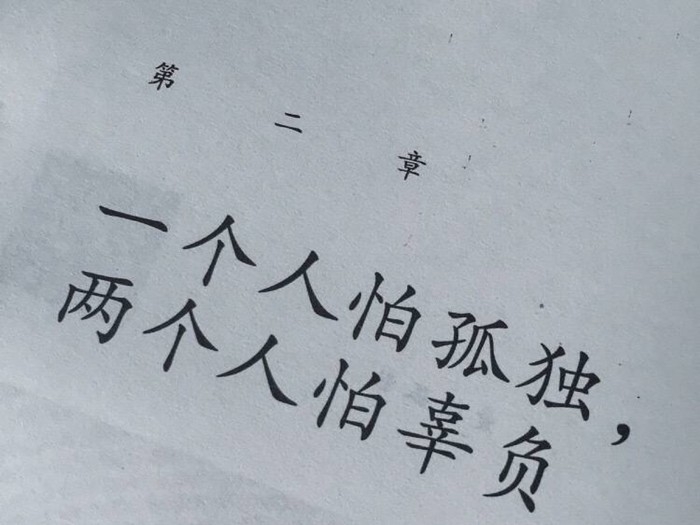 第二章
一个人怕孤独，
两个人怕辜负